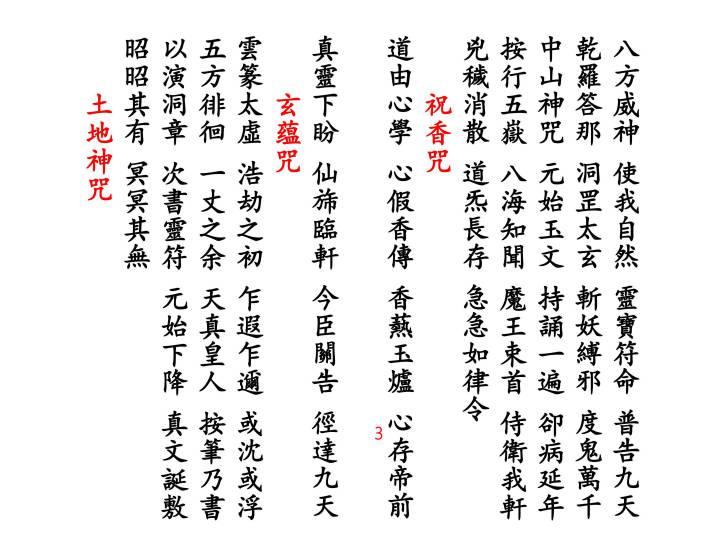 八方威神 使我自然 靈寶符命 普告九天
乾羅答那 洞罡太玄 斬妖縛邪 度鬼萬千
中山神咒 元始玉文 持誦一遍 卻病延年
按行五嶽 八海知聞 魔王束首 侍衛我軒
兇穢消散 道炁長存 急急如律令
祝香咒
道由心學 心假香傳 香爇玉爐 心存帝前
真靈下盼 仙斾臨軒 今臣關告 徑達九天
玄蘊咒
雲篆太虛 浩劫之初 乍遐乍邇 或沈或浮
五方徘徊 一丈之余 天真皇人 按筆乃書
以演洞章 次書靈符 元始下降 真文誕敷
昭昭其有 冥冥其無
土地神咒
3